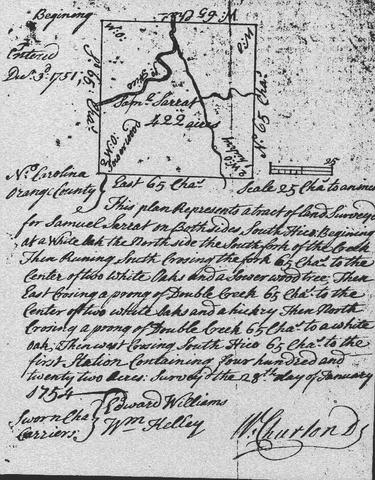 Begining
W. 65 Cha.
Entered
Dec. 3d. 1751,
W.O.
W.O.
So. 65 Cha.
No. 65 Cha.
S. Hico
Saml. Sarrat
422 acres
2 W.O.
No. Carolina
Orange County
East 65 Cha.
Scale 25 Cha. to an
25
This plan Represents a tract of Land Surveyed
for Samuel Sarrat on Both sides South Hico. Begining
at a White Oak the North side the South fork of the Creek
Then Runing South Crosing the fork 65 Cha. to the
Center of two White Oaks and a sower wood tree, Then
East Crosing a prong of Double Creek 65 Cha. to the
Center of two white Oaks and a hickry Then North
Crosing a prong of Double Creek 65 Cha. to a white
oak, Then west Crosing South Hico 65 Cha. to the
first Station Containing four hundred and
twenty two Acres. Survey'd the 28th day of January
1754
Sworn Cha.
Carriers
Edward Williams
Wm Kelley
W. Churton D S